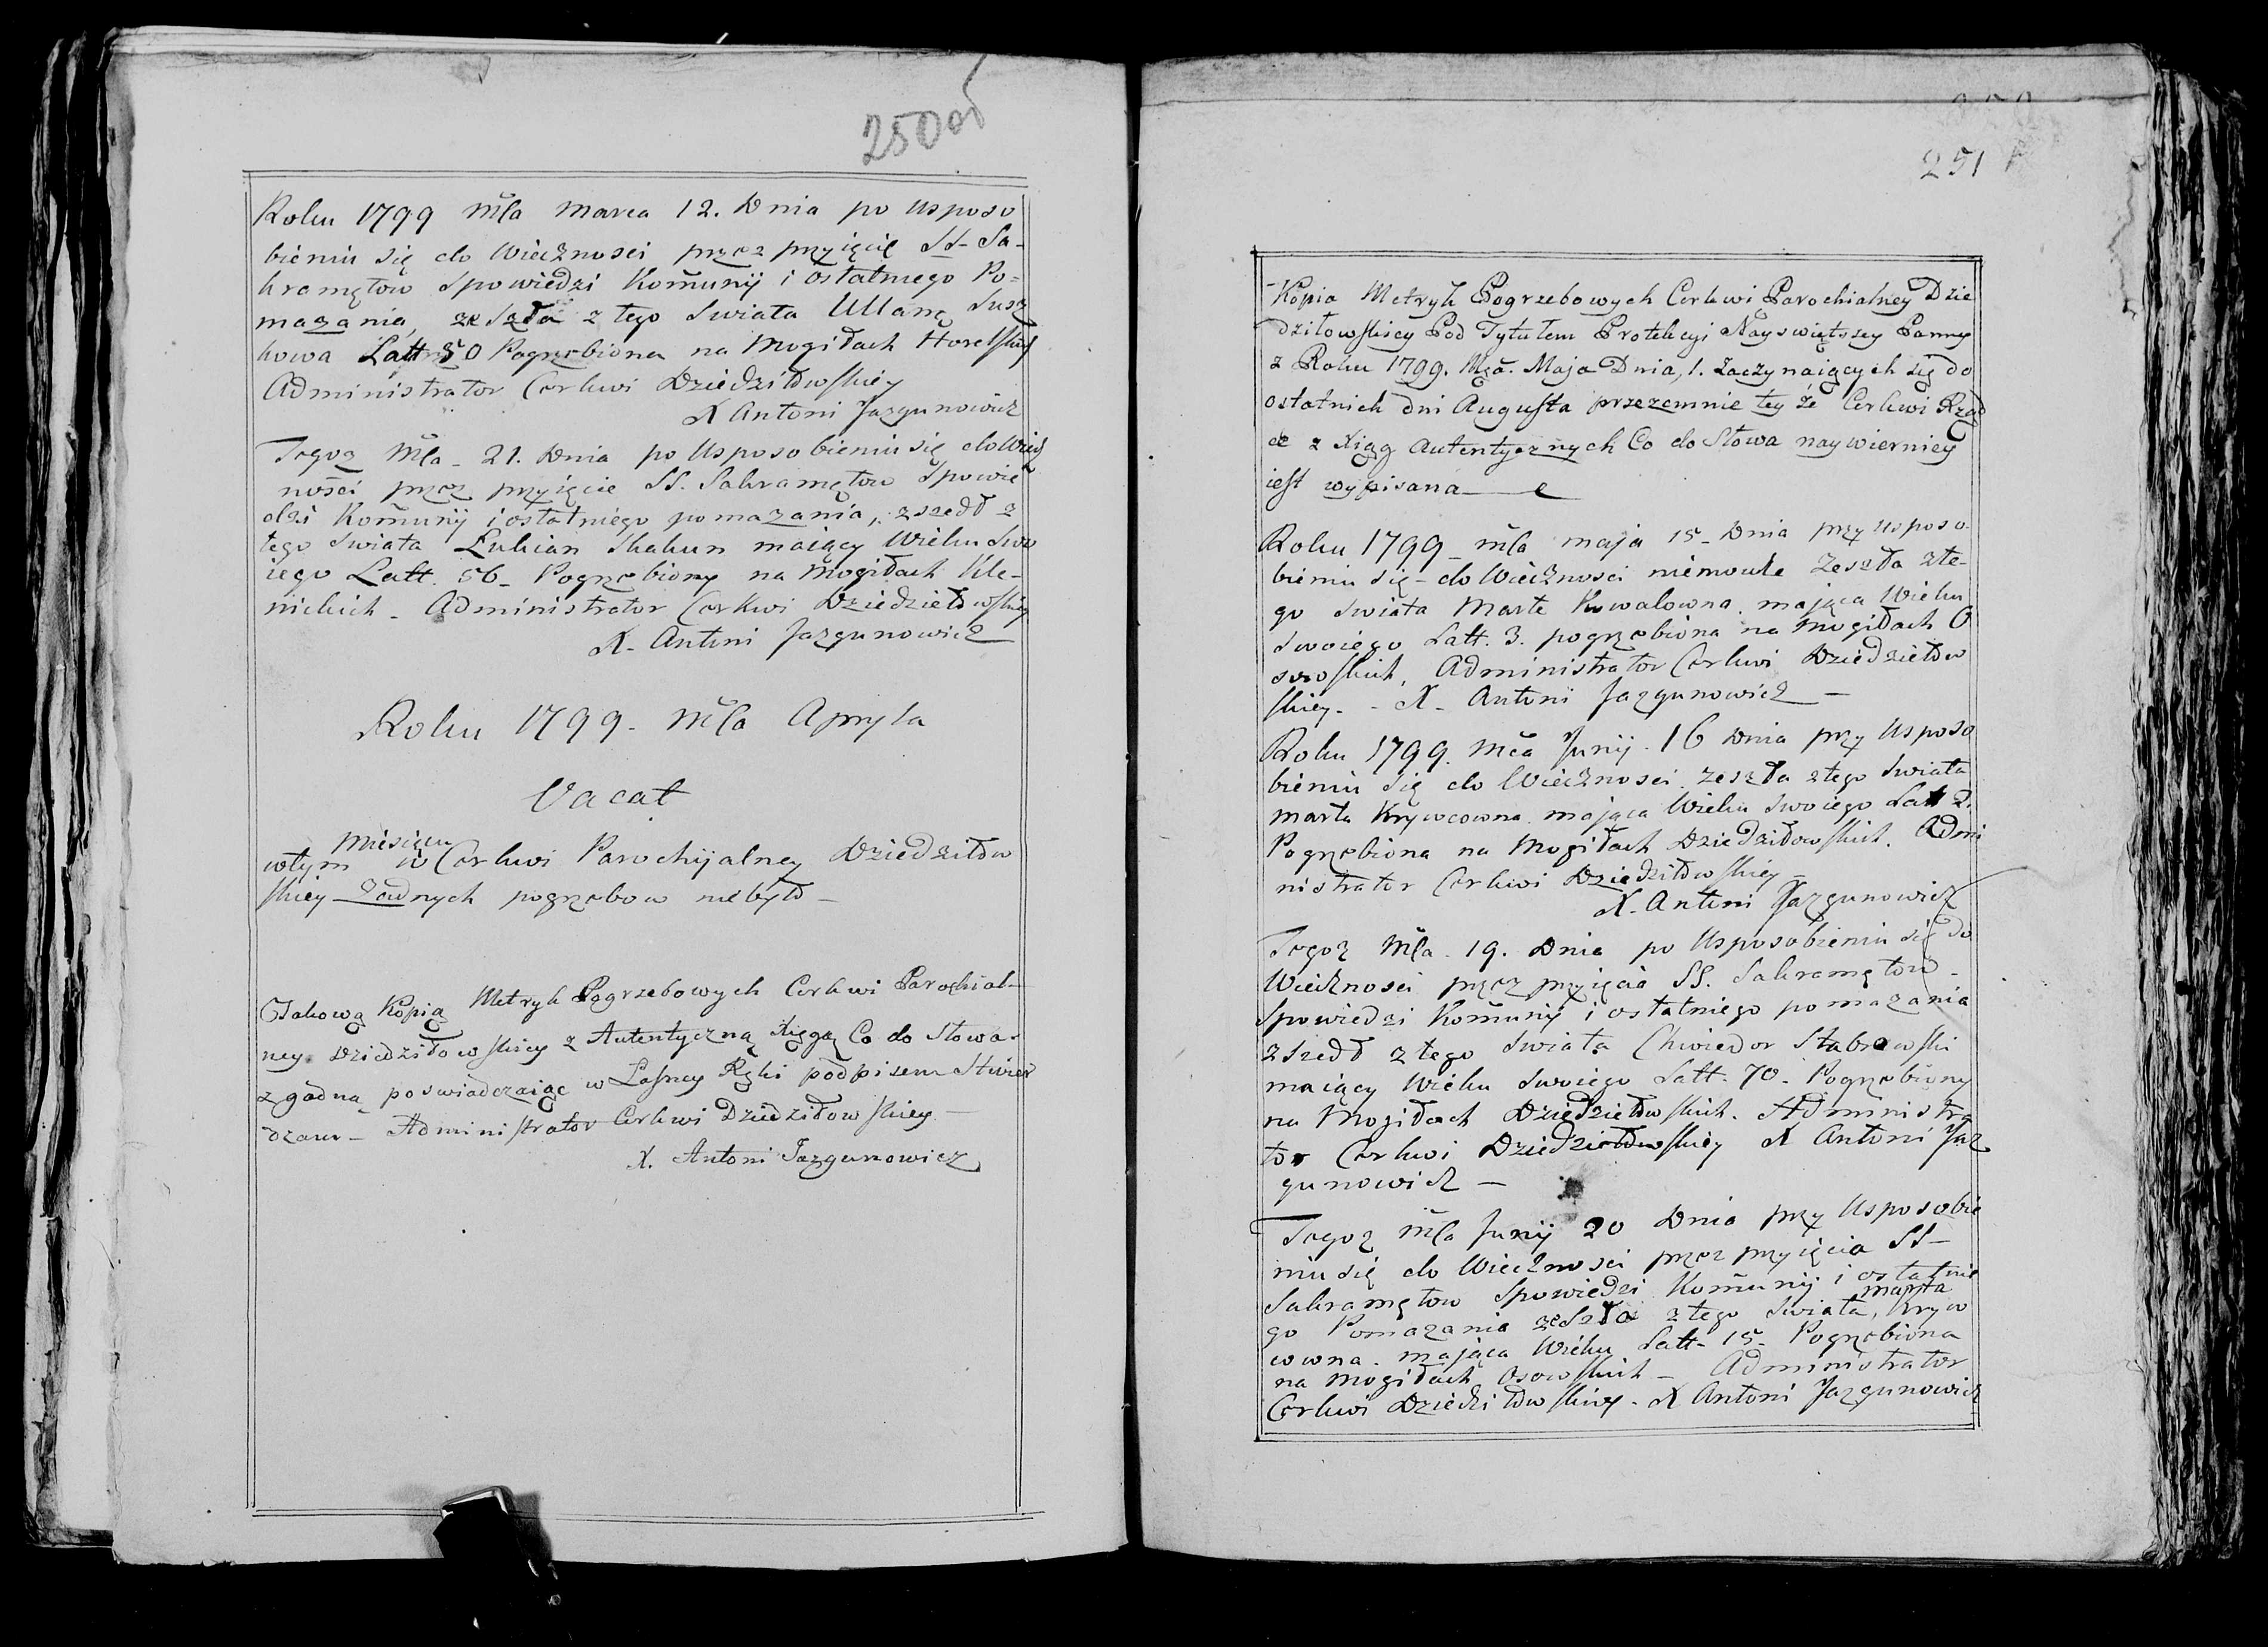 250 об
Roku 1799 mca marca 12. Dnia po usposo
bieniu się do Wieczności przez przyięcię SS- Sa-
kramętow Spowiedzi Komunij i ostatniego Po-
mazania, zeszła z tego Swiata Ullana Susz
kowa Latt 50 Pogrzebiona na Mogiłach
Administrator Cerkwi Dziedziłowskiey
X Antoni Jazgunowicz
Tegoz Mca - 21. Dnia po Usposobieniu się do Wiecz
ności przez przyięcie SS. Sakramętow Spowie
dzi Komunij i ostatniego pomazania, zszedł z
tego swiata Łukian Skakun maiący Wieku Swo
iego Latt. 56- Pogrzebiony na Mogiłach Kle-
nickich - Administrator Cerkwi Dziedziełowskiey
X- Antoni Jazgunowicz
Roku 1799 - Mca Apryla
Vacat
miesiącu
w tym w Cerkwi Parochijalney Dziedziłow
skiey żadnych pogrzebow niebyło -
Takową Kopią Metryk Pogrzebowych Cerkwi Parochial-
ney Dziedziłowskiey z Autentyczną Xięgą Co do Słowa
zgodną poswiadczaiąc własney Ręki podpisem Stwier
dzam - Administrator Cerkwi Dziedziłowskiey -
X. Antoni Jazgunowicz
251
Kopia Metryk Pogrzebowych Cerkwi Parochialney Dzie
dziłowskiey Pod Tytułem Protekcyi Nayswiętszey Panny
z Roku 1799. Mca. Maja Dnia, 1. Zaczynaiących się do
ostatnich dni Augusta przezemnie tey że Cerkwi Rząd
ce z Xiąg Autentycznych Co do Słowa naywierniey
iest wypisana
Roku 1799 - mca maja 15 - Dnia przy usposo-
bieniu się - do Wieczności niemowle zeszła z te-
go swiata Marta Kowalowna mająca Wieku
swoiego Latt. 3. pogrzebiona na Mogiłach O
sowskich, Administrator Cerkwi Dziedziełow
skiey - - X - Antoni Jazgunowicz -
Roku 1799. Mca Junij . 16 Dnia przy Usposo
bieniu się do Wieczności zeszła z tego Swiata
marta Krywcowna mająca Wieku swoiego Latt 2.
Pogrzebiona na Mogiłach Dziedziłowskich. Admi
nistrator Cerkwi Dziedziłowskiey -
X - Antoni Jazgunowicz
Tegoz Mca . 19. Dnia po Usposobieniu się do
Wieczności przez przyięcia SS. Sakramętow -
Spowiedzi Komunij i ostatniego pomazania
zszedł z tego Swiata Chwiedor Stabrowski
maiący Wieku swoiego Latt. 70 - Pogrzebiony
na Mogiłach Dziedziełowskich. Administra
tor Cerkwi Dziedziełowskiey X Antoni Jaz
gunowicz -
Tegoz Mca Junij 20 Dnia przy Usposobie
niu się do Wieczności przez przyięcia SS -
Sakramętow Spowiedzi Komunij i ostatnie
marta
go Pomazania zeszła z tego Swiata, Kryw
cowna . mająca Wieku Latt - 15 - Pogrzebiona
na mogiłach Osowskich - Administrator
Cerkwi Dziedziłowskiey - X Antoni Jazgunowicz